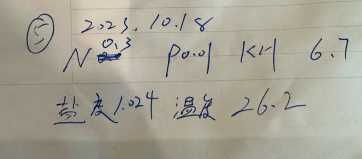 ⑤ 2023.10.18
N 0.3 P0.01 KH 6.7
盐度1.024 温度 26.2